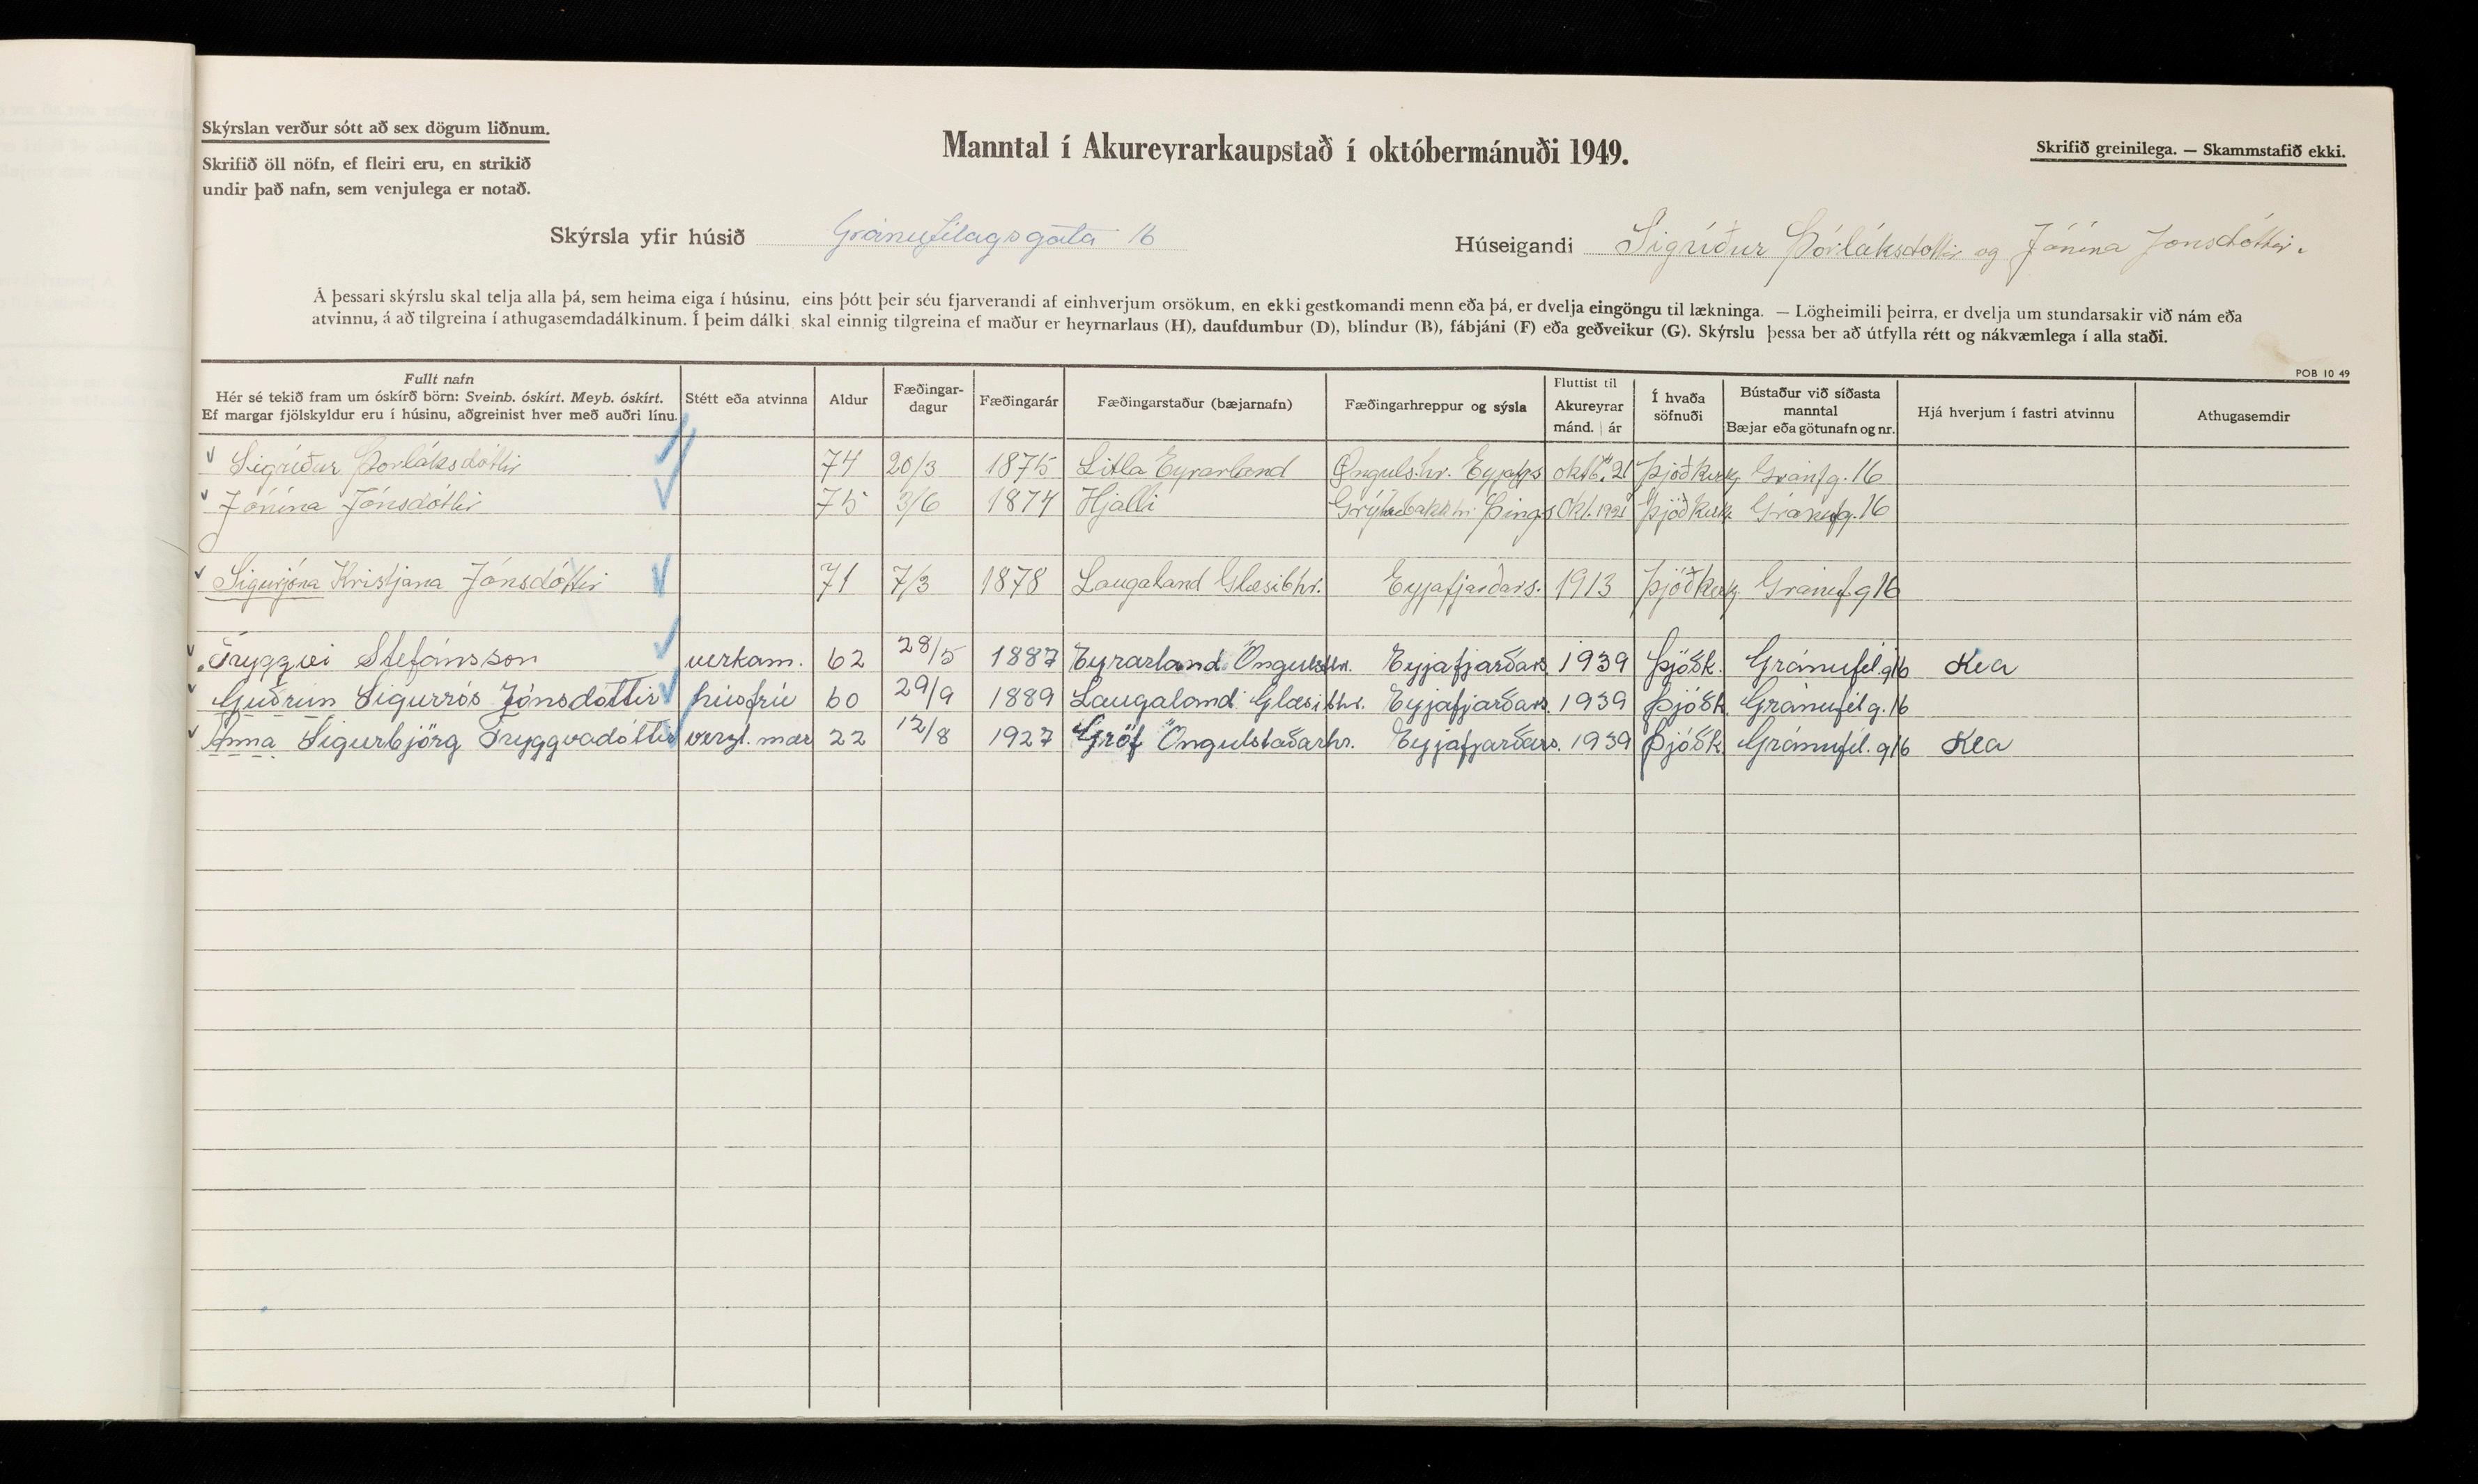 Skýrslan verður sótt að sex dögum liðnum.
Skrifið öll nöfn, ef fleiri eru, en strikið
undir það nafn, sem venjulega er notað.
Manntal í Akureyrarkaupstað í októbermánuði 1949.
Skrifið greinilega. — Skammstafið ekki.
Skýrsla yfir húsið Gránufélagsgata 16
Húseigandi Sigríður Þórláksdóttir og Jónína Jónsdóttir.
Á þessari skýrslu skal telja alla þá, sem heima eiga í húsinu, eins þótt þeir séu fjarverandi af einhverjum orsökum, en ekki gestkomandi menn eða þá, er dvelja eingöngu til lækninga. — Lögheimili þeirra, er dvelja um stundarsakir við nám eða
atvinnu, á að tilgreina í athugasemdadálkinum. Í þeim dálki skal einnig tilgreina ef maður er heyrnarlaus (H), daufdumbur (D), blindur (B), fábjáni (F) eða geðveikur (G). Skýrslu þessa ber að útfylla rétt og nákvæmlega í alla staði.
POB 10 49
Fullt nafn
Hér sé tekið fram um óskírð börn: Sveinb. óskírt. Meyb. óskírt.
Ef margar fjölskyldur eru í húsinu, aðgreinist hver með auðri línu.
Stétt eða atvinna
Aldur
Fæðingar-
dagur
Fæðingarár
Fæðingarstaður (bæjarnafn)
Fæðingarhreppur og sýsla
Fluttist til
Akureyrar
mánd. | ár
Í hvaða
söfnuði
Bústaður við síðasta
manntal
Bæjar eða götunafn og nr.
Hjá hverjum í fastri atvinnu
Athugasemdir
Sigríður Þorláksdóttir 74 20/3 1875 Litla Eyrarland Önguls.hr. Eyjafjs 21 Þjóðkirkj Gránfg. 16
Jónína Jónsdóttir 75 3/6 1874 Hjalli Grýtubakkhr. Þings Okt. 1921 Þjóðkirk. Gránufg. 16
Sigurjóna Kristjana Jónsdóttir 71 7/3 1878 Laugaland Glæsibhr. Eyjafjarðars. 1913 Þjóðkirkj. Gránuf.g 16
Tryggvi Stefánsson verkam. 62 28/5 1887 Eyrarland Öngulsthr. Eyjafjarðars. 1939 Þjóðk. Gránufél.g16 Kea
Guðrún Sigurrós Jónsdóttir húsfrú 60 29/9 1889 Laugaland Glæsibhr. Eyjafjarðars. 1939 Þjóðk. Gránufél g. 16
Anna Sigurbjörg Tryggvadóttir verzl. mær 22 12/8 1927 Gröf Öngulstaðarhr. Eyjafjarðars. 1939 Þjóðk. Gránufél. g16 Kea